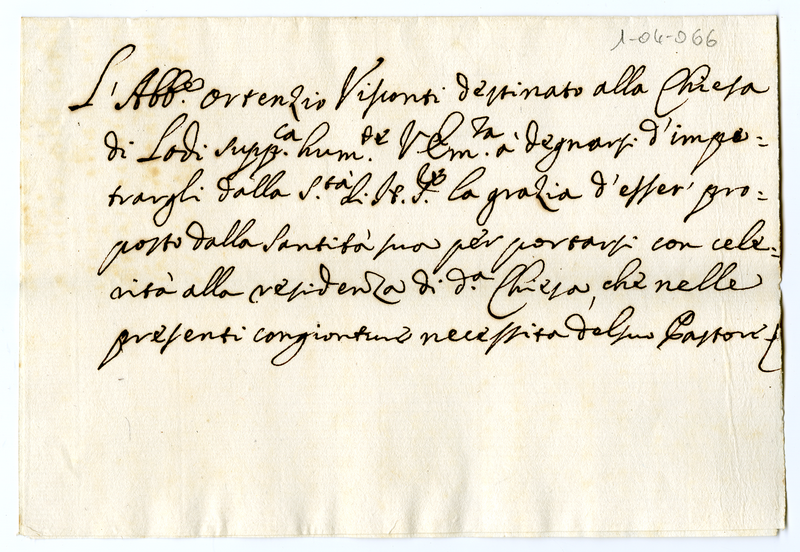 1-04-066
L'Abb.e Ortenzio Visconti destinato alla Chiesa
di Lodi supp.ca hum.te V Em.za à degnarsi d'impe=
trargli dalla S.tà di N. S.re la grazia d'esser' pro=
posto dalla Santità sua per portarsi con cele=
rità alla residenza di d.a Chiesa, che nelle
presenti congionture necessita del suo Pastore